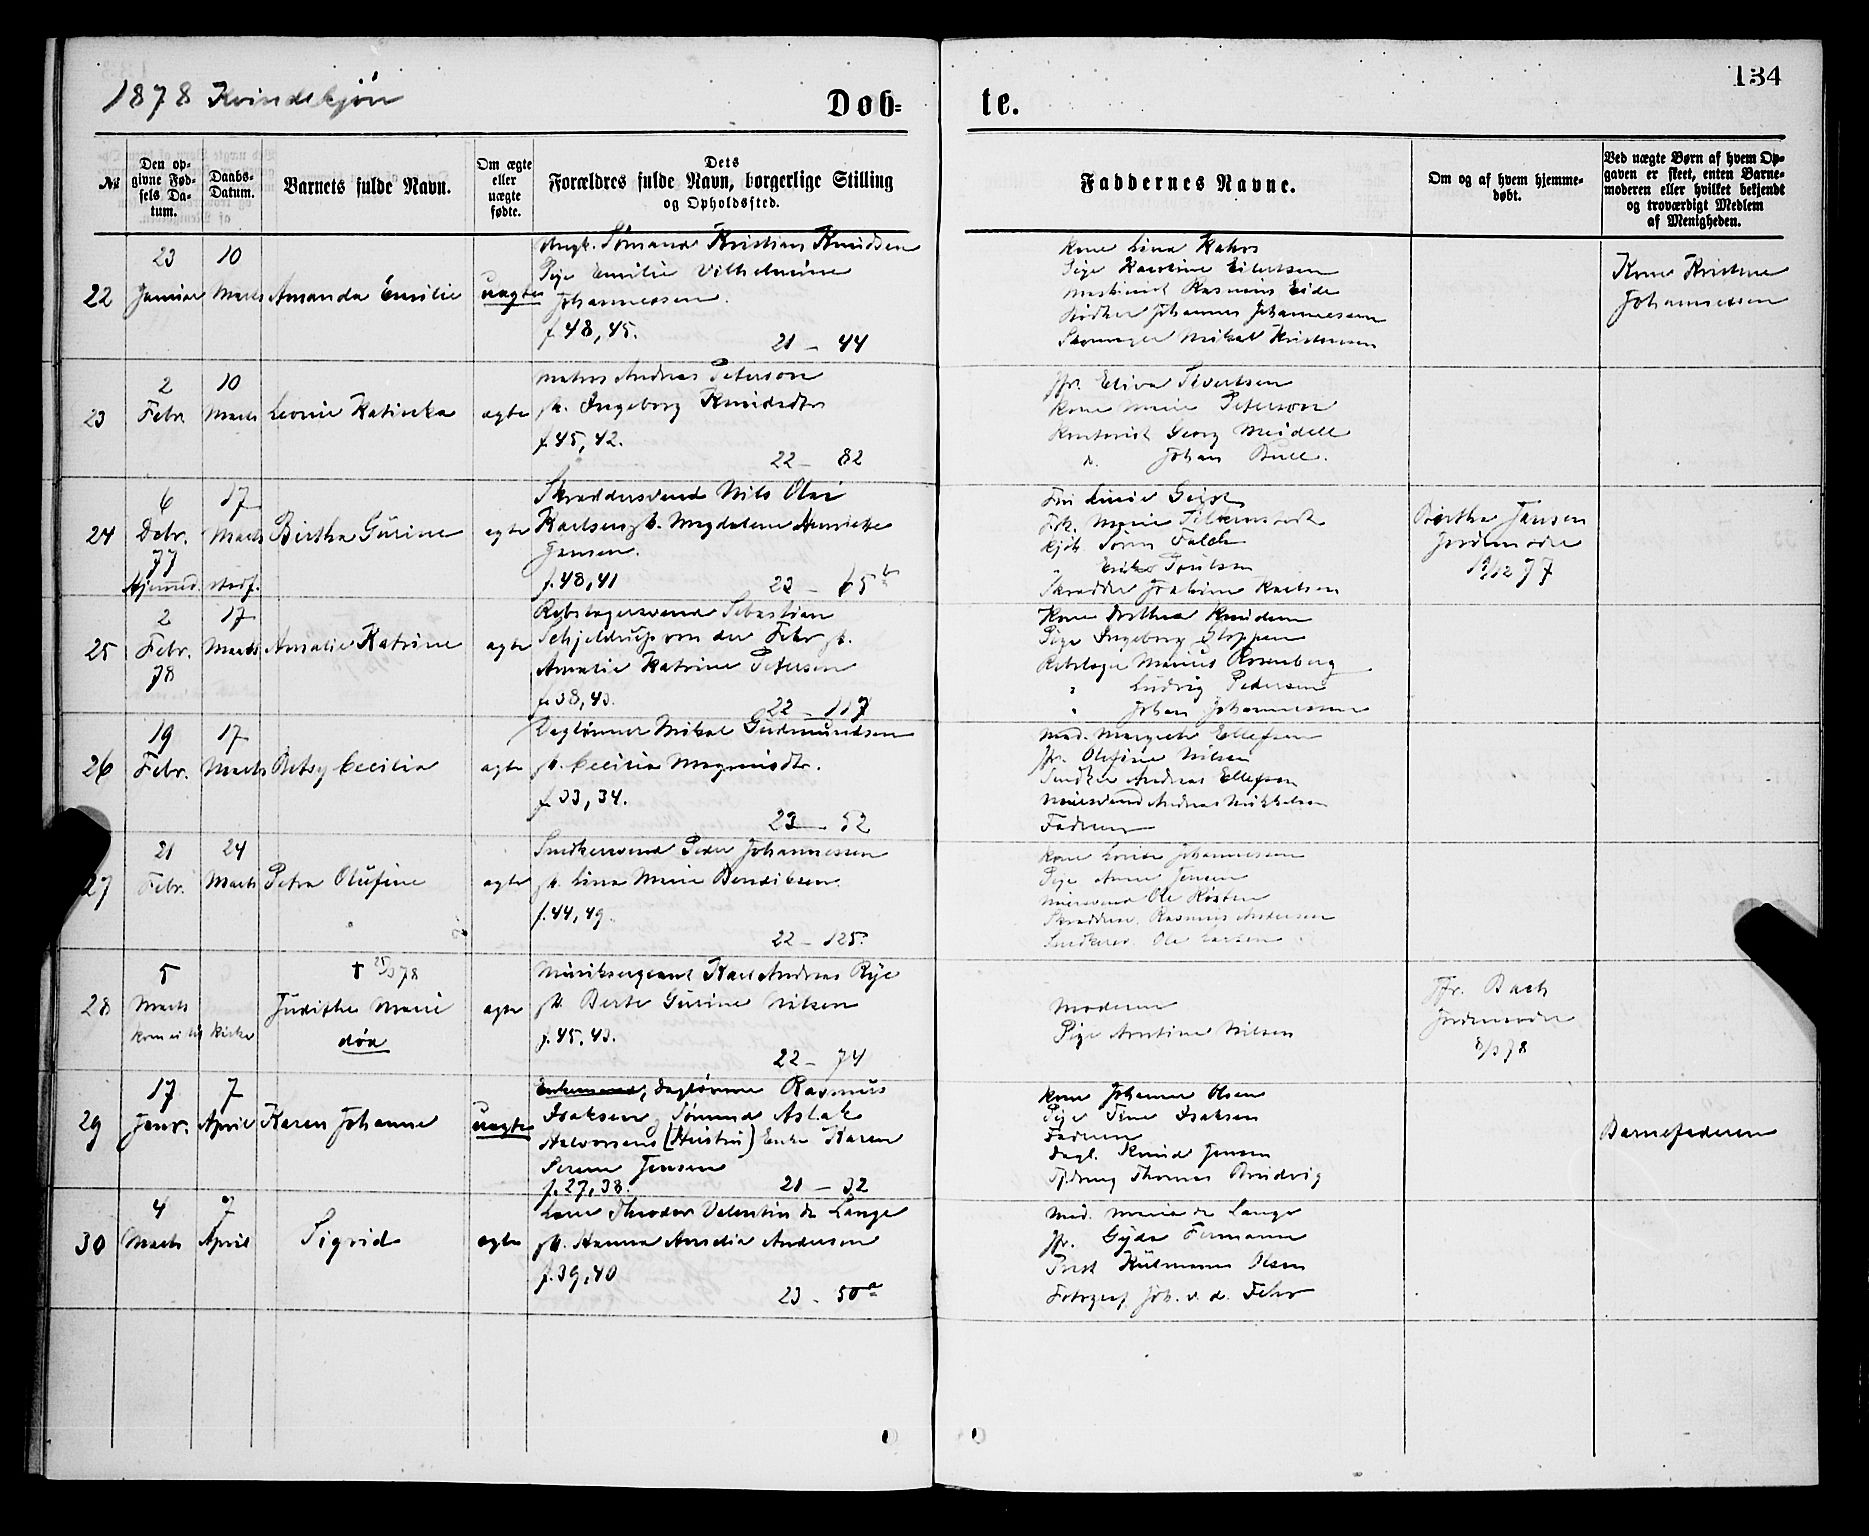 1878 Kvindekjön
Döb=
te.
134
№
Den op-
givne Fød-
sels Da-
tum.
Daabs-
Datum.
Barnets fulde Navn.
Om ægte
eller
uægte
fødte.
Dets
Forældres fulde Navn, borgerlige Stilling
og Opholdssted.
Faddernes Navne.
Om og af hvem hjemme-
døbt.
Ved uægte Børn af hvem Op-
gaven er skeet, enten Barne-
moderen eller hvilket bekjendt
og troværdigt Medlem
af Menigheden.
22
23
Januar
10
Marts
Amanda Emilie
uægte
Ungk. Sømand Kristian Knudsen
Pige Emilie Vilhelmine
Johannessen.
f. 48, 45.
21 - 44
Kone Lina
Pige Karoline Eilertsen
Maskinist Rasmus Eide
Bødker Johannes Johannessen
Skomager Mikal Kristensen
Kone Kristine
Johannessen
23
2
Febr.
10
Marts
Leonie Katinka
ægte
Matros Andreas Peterson
h. Ingeborg Knudsdtr
f. 45, 42.
22 - 82
Jfr. Elisa Sivertsen
Kone Marie Peterson
Kontorist Georg Meidell
d. Johan Bull.
24
6
Debr.
77
Hjemmed.
17
Marts
stadf.
Birtha Gurine
ægte
Skræddersvend Nils Olai
Karlsen, h. Magdalene Henriette
Jansen.
f. 48, 41
23 - 65 b
Fru Geist
Frk. Marie
Kjøb. Søren Falck
Erik Poulsen
Skrædder Karlsen
Birtha Jansen
Jordemoder
19/12 77
25
2
Febr.
78
17
Marts
Amalie Katrine
ægte
Rebslagersvend Sebastian
Schjeldrup von der Fehr, h.
Amalie Katrine Petersen
f. 38, 43.
22 - 117
Kone Dorthea Knudsen
Pige Ingeborg Gloppen
Rebslager Marius Rosenberg
" Ludvig Pedersen
" Johan Johannessen
26
19
Febr.
17
Marts
Betsy Cecilia
ægte
Daglønner Mikal Gudmundsen
h. Cecilia Magnusdtr.
f. 33, 34.
23 - 52
Mad. Margrete Ellefsen
Jfr. Olufine Nilsen
Snedker Andreas Ellefsen
Murersvend Andreas Mikkelsen
Faderen
27
21
Febr.
24
Marts
Petra Olufine
ægte
Snedkersvend Peder Johannessen
h. Lina Marie Bendiksen.
f. 44, 49.
22 - 125.
Kone Lovise Johannessen
Pige Anne Jensen
Murersvend Ole
Skræddersv. Rasmus Andersen
Snedkersv. Ole Larsen
28
5
Marts
kom ei til Kirke
† 25/3 78
Judithe Marie
død
ægte
Musiksergeant Karl Andreas Rye
h. Berte Gurine Nilsen
f. 45, 43.
22 - 74
Moderen
Pige Nilsen
Jfr. Bach
Jordemoder
8/3 78
29
17
Janr.
7
April
Karen Johanne
uægte
Enkemand, Daglønner Rasmus
Isaksen, Sømand Aslak
Halvorsens (Hustru) Enke Karen
Serene Jensen
f. 27, 38.
21 - 32
Kone Johanne Olsen
Pige Tine Isaksen
Faderen
Dagl. Knud Jensen
Thomas
Barnefaderen
30
4
Marts
7
April
Sigrid
ægte
Theodor Valentin de Lange
h. Hanna Amalia Andersen
f. 39, 40
23 - 50 a
Mad. Maria de Lange
Jfr. Gyda Fermann
Prest Kulmann Olsen
Fotograf Joh. v. d. Fehr